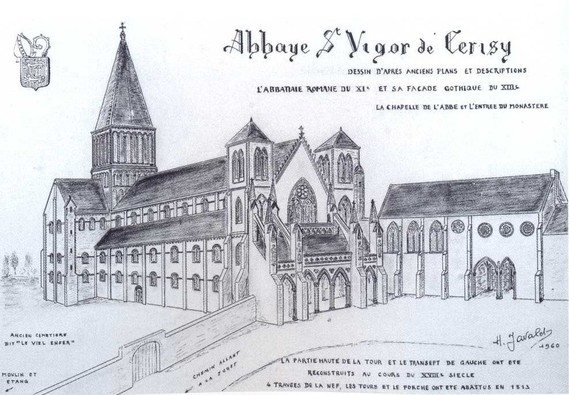 Abbaye St Vigor de Cerisy
DESSIN D'APRES ANCIENS PLANS ET DESCRIPTIONS
L'ABBATIALE ROMANE DU XIe ET SA FACADE GOTHIQUE DU XIIIe
LA CHAPELLE DE L'ABBE ET L'ENTREE DU MONASTERE
ANCIEN CIMETIERE
DIT "LE VIEL ENFER"
MOULIN ET
ETANG
CHEMIN ALLANT
A LA FORET
1960
LA PARTIE HAUTE DE LA TOUR ET LE TRANSEPT DE GAUCHE ONT ETE
RECONSTRUITS AU COURS DU XVIIIe SIECLE
4 TRAVEES DE LA NEF, LES TOURS ET LE PORCHE ONT ETE ABATTUS EN 1813